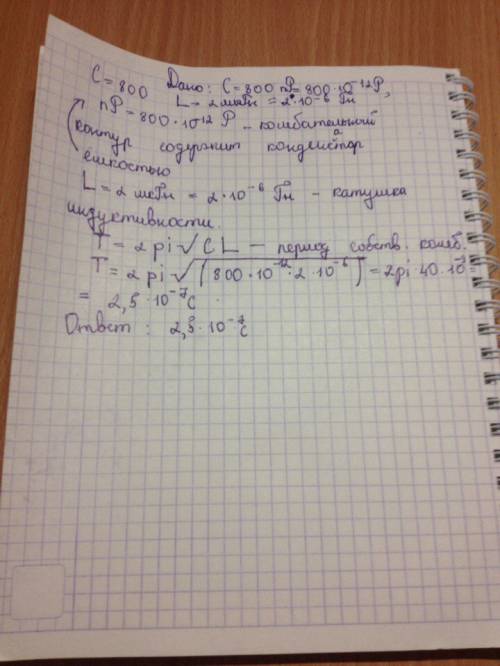 C = 800 Дано: C = 800 пР = 800·10⁻¹²Р,
L = 2 мкГн = 2·10⁻⁶ Гн
пР = 800·10⁻¹² Р – комбательный
контур содержит конденсатор
ёмкостью
L = 2 мкГн = 2·10⁻⁶ Гн – катушка
индуктивности.
T = 2 pi √ C L – период собств. колеб.
T = 2 pi √(800·10⁻¹²·2·10⁻⁶) = 2pi·40·10⁻⁹
= 2,5·10⁻⁷ с.
Ответ: 2,5·10⁻⁷ с